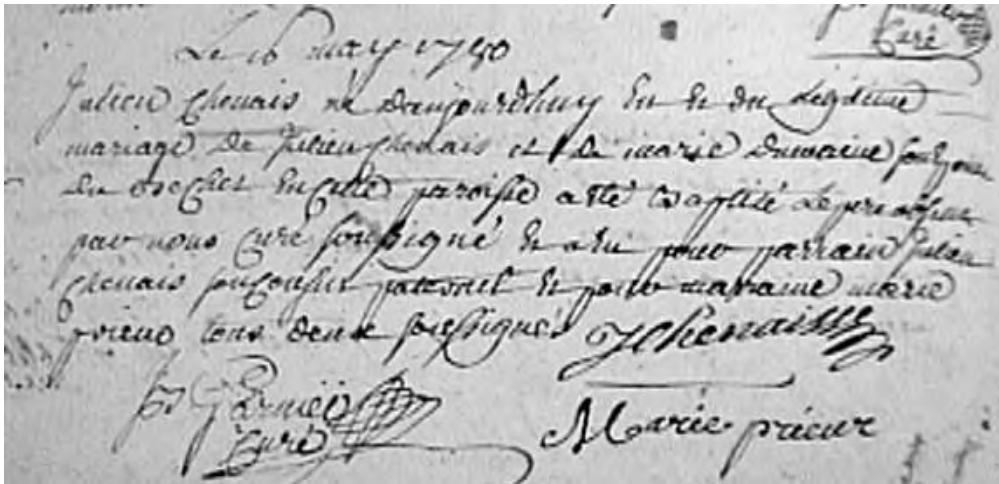 Curé
Le 16 may 1750
Julien Chenais né d'aujourdhuy en et du Légitime
mariage de Julien Chenais et de marie
du en cette paroisse a été baptisé Le
par nous Curé soussigné et a eu pour parrain Julien
Chenais son Cousin paternel et pour maraine marie
prieur tous deux soussignés JChenais
Curé
Marie prieur